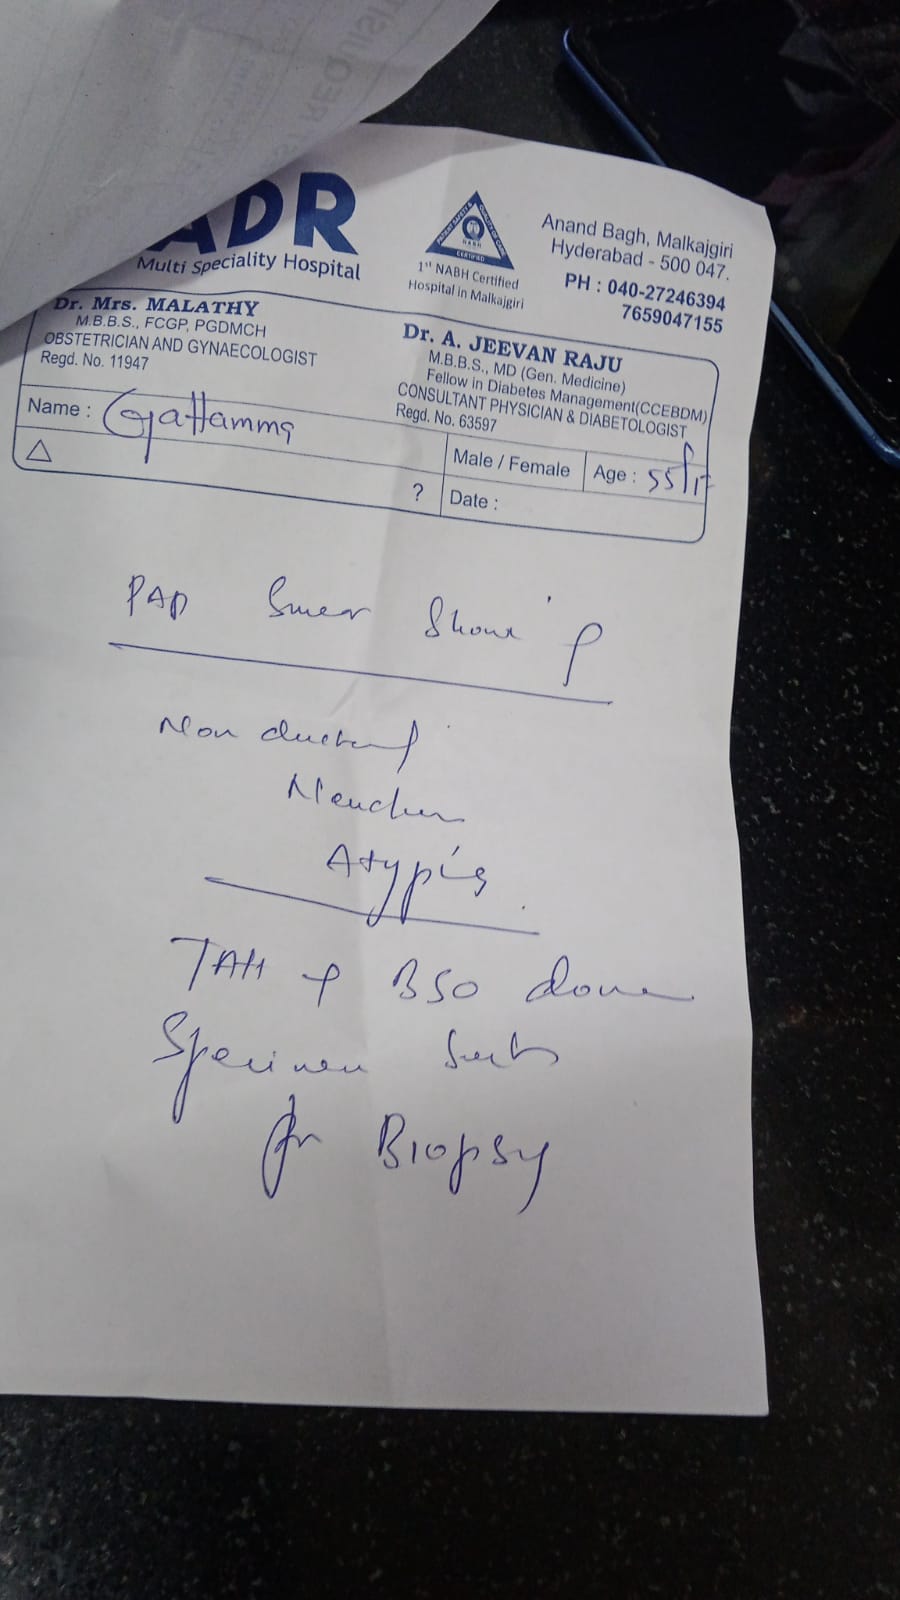 ADR
Multi Speciality Hospital
1st NABH Certified
Hospital in Malkajgiri
Anand Bagh, Malkajgiri
Hyderabad - 500 047.
PH : 040-27246394
7659047155
Dr. Mrs. MALATHY
M.B.B.S., FCGP, PGDMCH
OBSTETRICIAN AND GYNAECOLOGIST
Regd. No. 11947
Dr. A. JEEVAN RAJU
M.B.B.S., MD (Gen. Medicine)
Fellow in Diabetes Management(CCEBDM)
CONSULTANT PHYSICIAN & DIABETOLOGIST
Regd. No. 63597
Name : Gattamma
Male / Female Age : 55/F
△ ? Date :
PAP Smear Shows
Atypia
TAH BSO done
Specimen Sent
for Biopsy